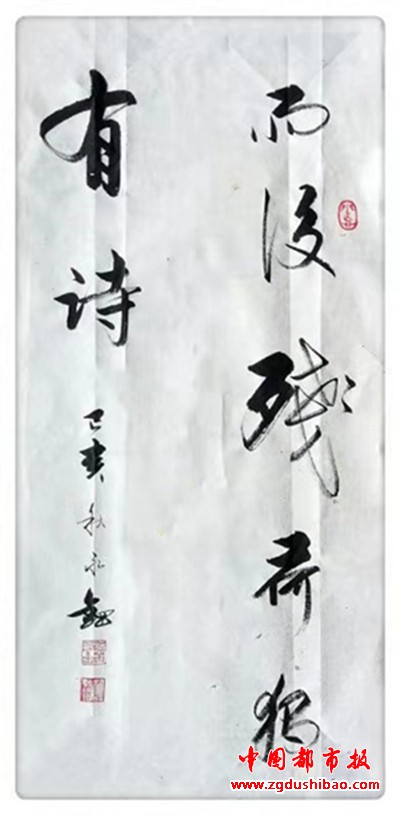 雨後殘荷
有诗
己亥秋永
中国都市报
www.zgdushibao.com